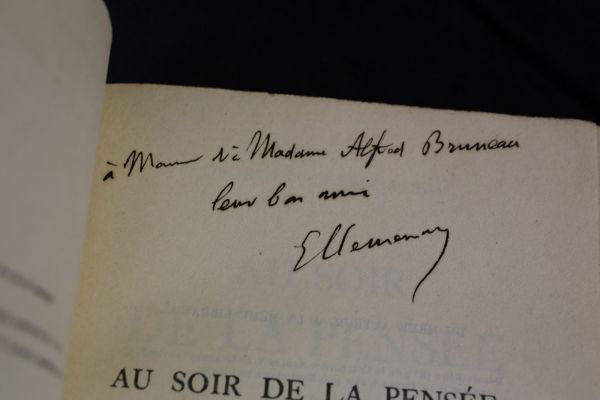 à Monsieur & à Madame Alfred Bruneau
leur bon ami
GClemenceau
AU SOIR DE LA PENSÉE